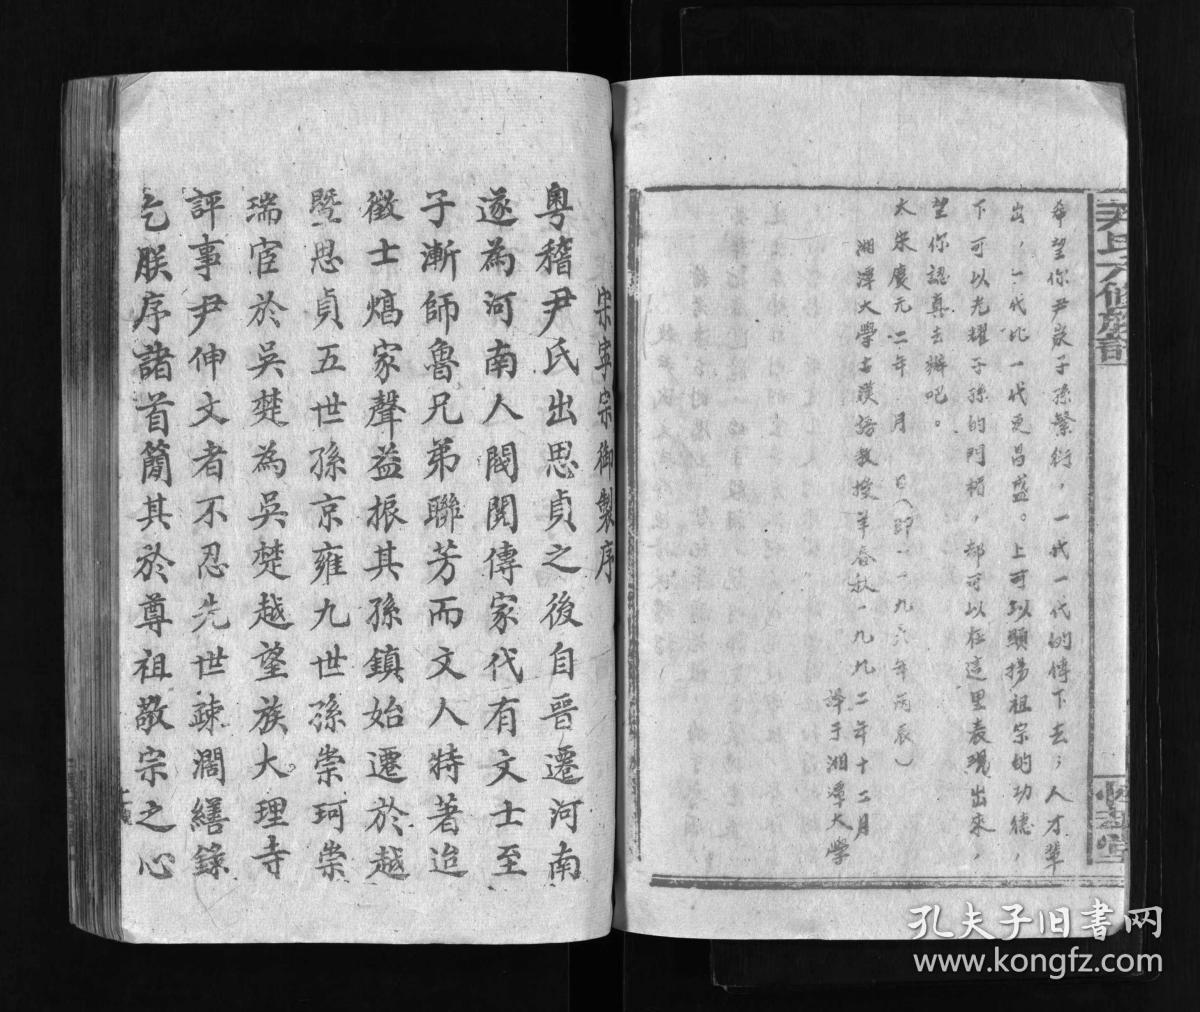 尹氏六修族譜
希望你尹家子孫繁衍，一代一代的傳下去；人才輩
出，一代比一代更昌盛。上可以顯揚祖宗的功德，
下可以光耀子孫的門楣，都可以在這里表現出來，
望你認真去辦吧。
大宋慶元二年 月 日（即一一九六年丙辰）
湘潭大學古漢語教授羊春秋一九九二年十二月
譯于湘潭大學
宋寧宗御製序
粵稽尹氏出思貞之後自晋遷河南
遂為河南人閥閱傳家代有文士至
子漸師魯兄弟聯芳而文人特著迨
徵士焞家聲益振其孫鎮始遷於越
暨思貞五世孫京雍九世孫崇珂崇
瑞宦於吳楚為吳楚越望族大理寺
評事尹伸文者不忍先世疎濶繕錄
乞朕序諸首簡其於尊祖敬宗之心
孔夫子旧書网
www.kongfz.com